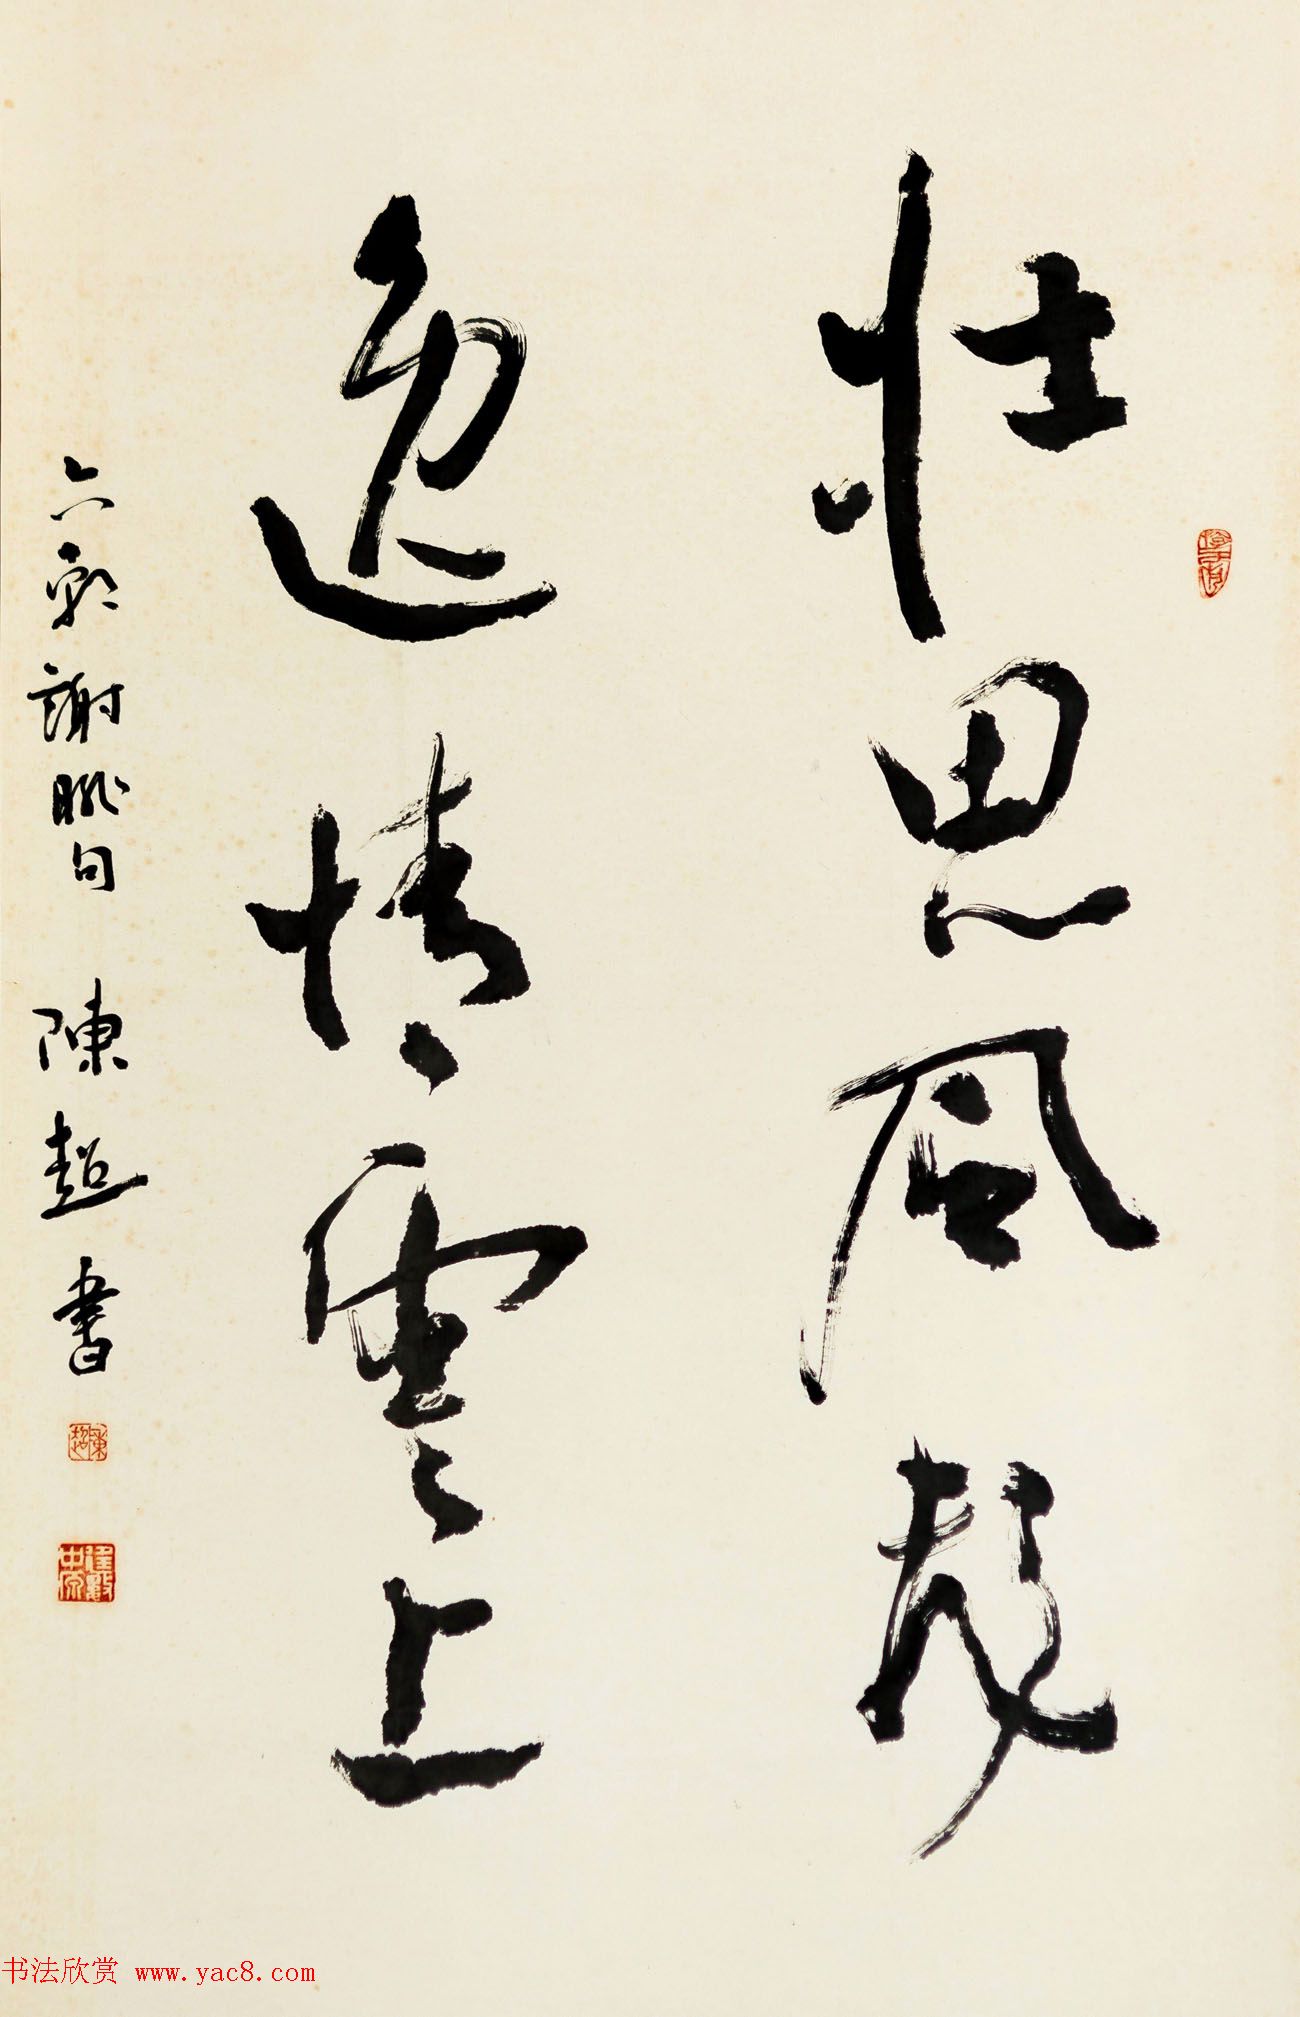 壮思风发
逸情雲上
六朝謝朓句 陳超書
陳超
书法欣赏 www.yac8.com